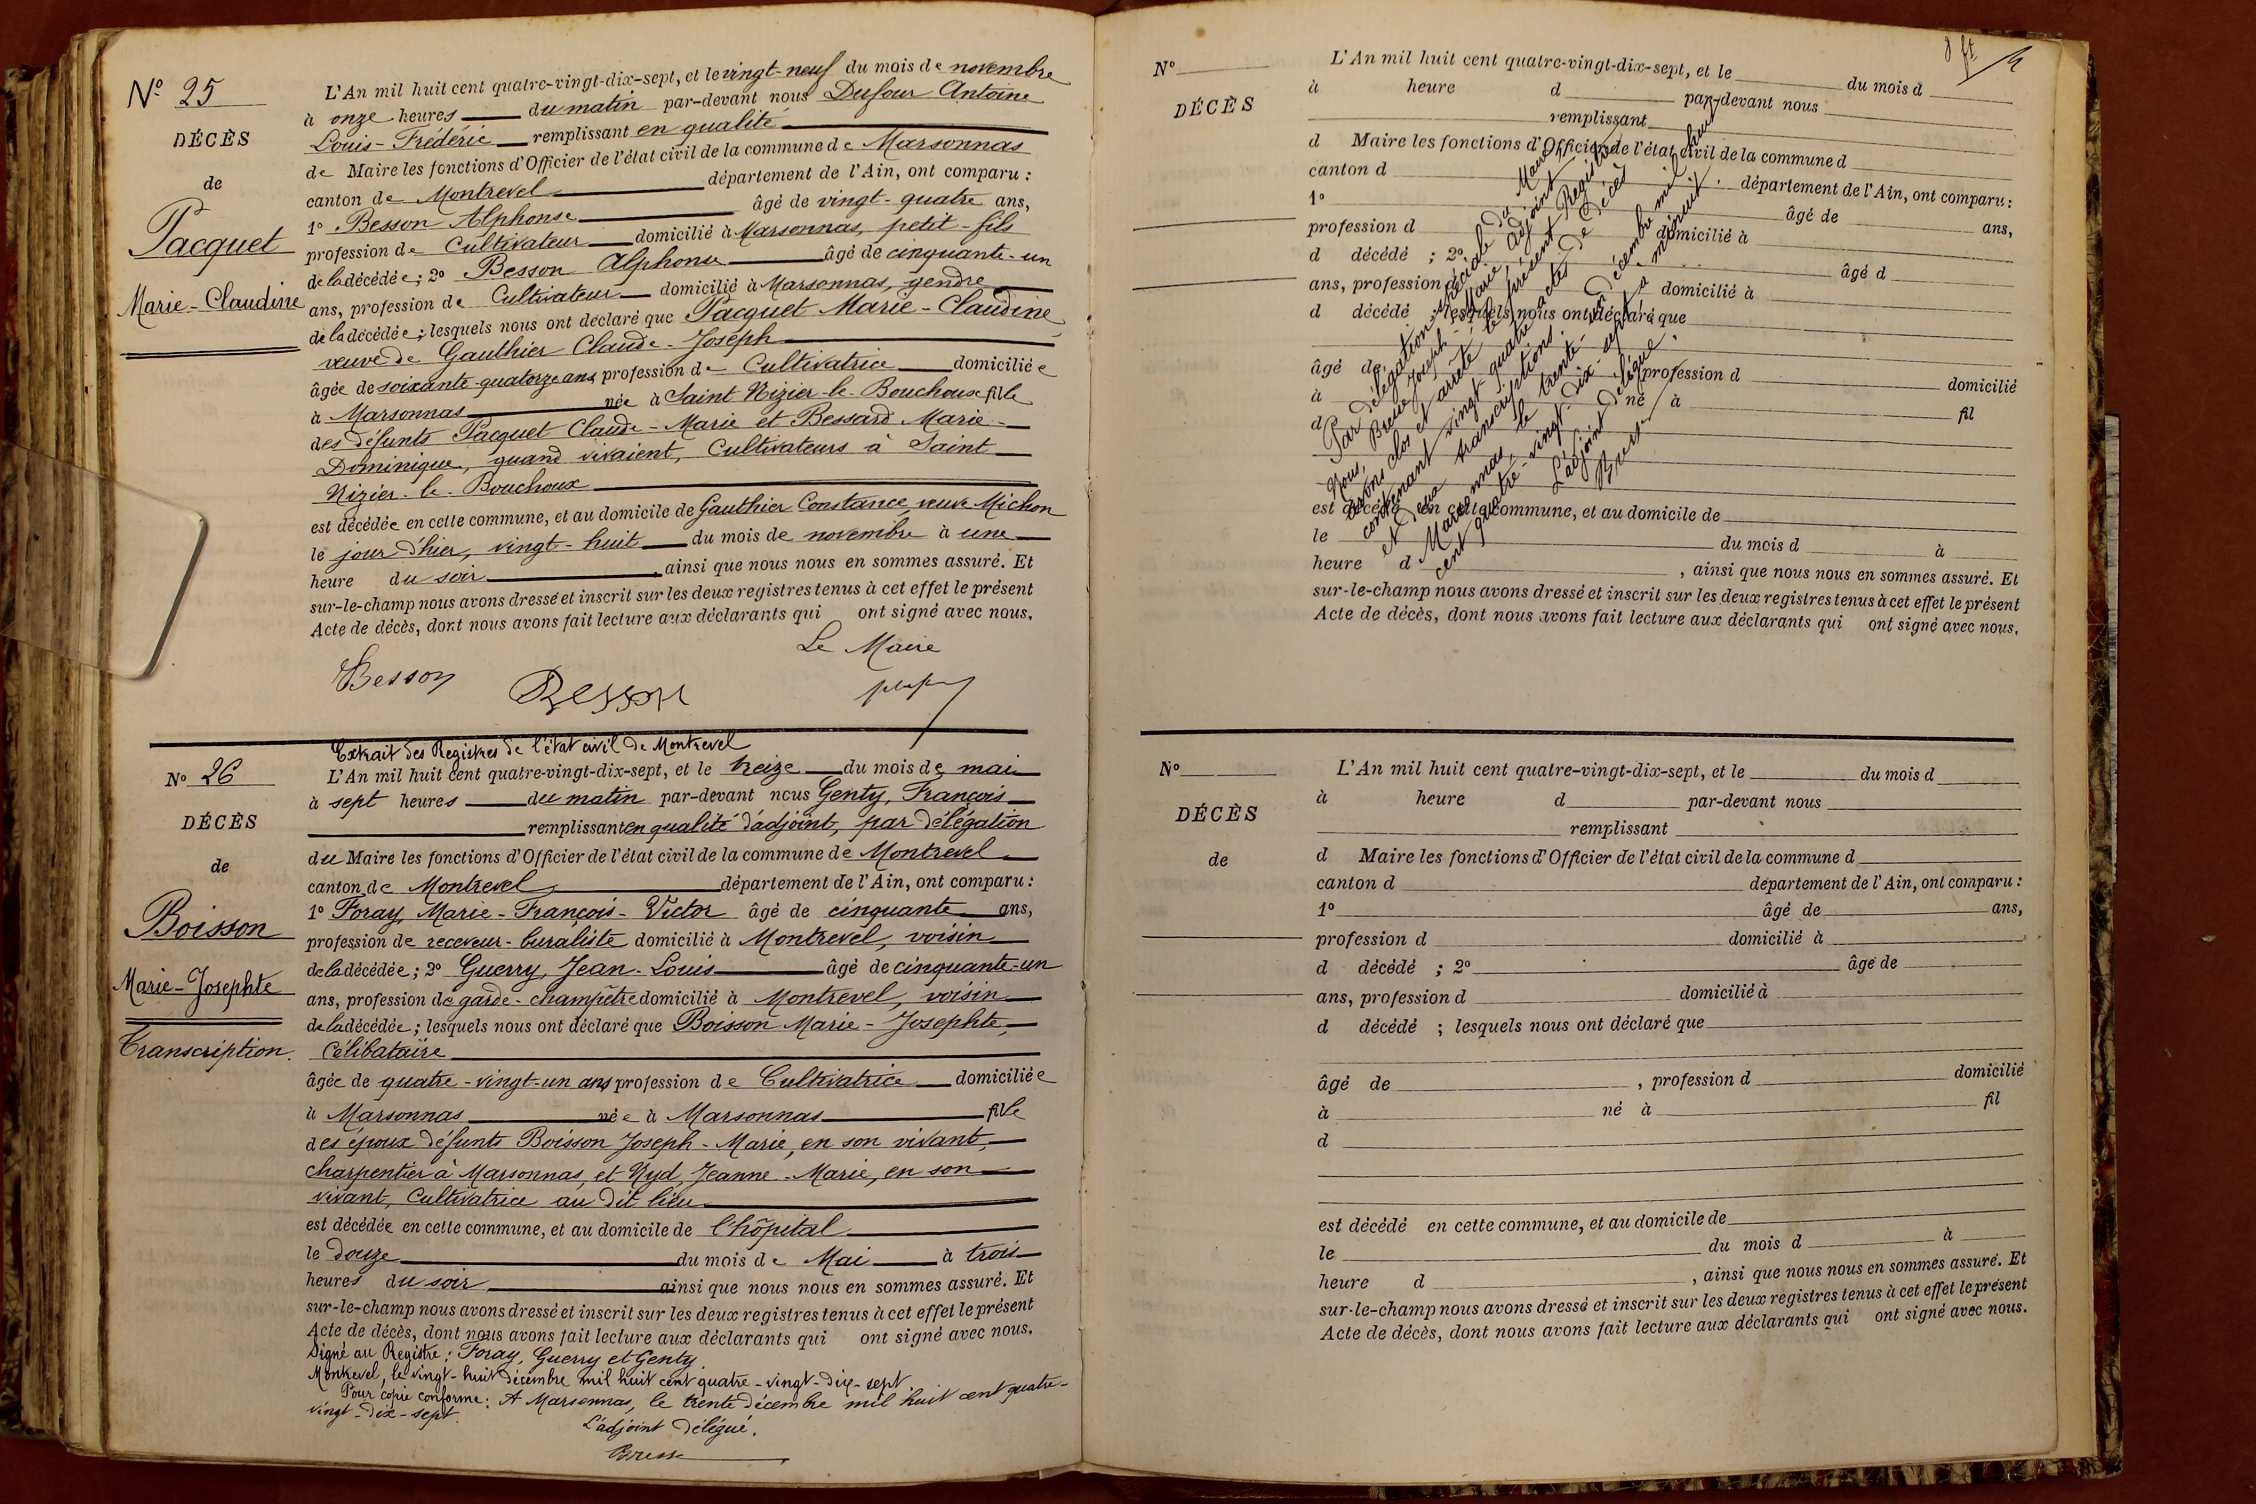 Nº 25
DÉCÈS
de
Pacquet
Marie-Claudine
L'An mil huit cent quatre-vingt-dix-sept, et le vingt-neuf du mois de novembre
à onze heures du matin par-devant nous Dufour Antoine
Louis-Frédéric remplissant en qualité
de Maire les fonctions d'Officier de l'état civil de la commune de Marsonnas
canton de Montrevel département de l'Ain, ont comparu :
1º Besson Alphonse âgé de vingt-quatre ans,
profession de Cultivateur domicilié à Marsonnas, petit-fils
de la décédée ; 2º Besson Alphonse âgé de cinquante-un
ans, profession de Cultivateur domicilié à Marsonnas, gendre
de la décédée ; lesquels nous ont déclaré que Pacquet Marie-Claudine
veuve de Gauthier Claude-Joseph
âgée de soixante-quatorze ans profession de Cultivatrice domiciliée
à Marsonnas née à Saint Nizier-le-Bouchoux fille
des défunts Pacquet Claude-Marie et Bessard Marie-
Dominique, quand vivaient, Cultivateurs à Saint
Nizier-le-Bouchoux
est décédée en cette commune, et au domicile de Gauthier Constance veuve Michon
le jour d'hier, vingt-huit du mois de novembre à une
heure du soir, ainsi que nous nous en sommes assuré. Et
sur-le-champ nous avons dressé et inscrit sur les deux registres tenus à cet effet le présent
Acte de décès, dont nous avons fait lecture aux déclarants qui ont signé avec nous.
Le Maire
Besson Besson
Nº 26
DÉCÈS
de
Boisson
Marie-Josephte
Transcription.
Extrait des Registres de l'état civil de Montrevel
L'An mil huit cent quatre-vingt-dix-sept, et le treize du mois de mai
à sept heures du matin par-devant nous Genty, François
remplissant en qualité d'adjoint, par délégation
du Maire les fonctions d'Officier de l'état civil de la commune de Montrevel
canton de Montrevel département de l'Ain, ont comparu :
1º Foray, Marie-François-Victor âgé de cinquante ans,
profession de receveur-buraliste domicilié à Montrevel, voisin
de la décédée ; 2º Guerry, Jean-Louis âgé de cinquante-un
ans, profession de garde-champêtre domicilié à Montrevel, voisin
de la décédée ; lesquels nous ont déclaré que Boisson Marie-Josephte,
Célibataire
âgée de quatre-vingt-un ans profession de Cultivatrice domiciliée
à Marsonnas née à Marsonnas fille
des époux défunts Boisson Joseph-Marie, en son vivant,
charpentier à Marsonnas, et Nyd, Jeanne-Marie, en son
vivant, Cultivatrice au dit lieu
est décédée en cette commune, et au domicile de l'hôpital
le douze du mois de Mai à trois
heures du soir ainsi que nous nous en sommes assuré. Et
sur-le-champ nous avons dressé et inscrit sur les deux registres tenus à cet effet le présent
Acte de décès, dont nous avons fait lecture aux déclarants qui ont signé avec nous.
Signé au Registre : Foray, Guerry et Genty.
Montrevel, le vingt-huit décembre mil huit cent quatre-vingt-dix-sept
Pour copie conforme : A Marsonnas, le trente décembre mil huit cent quatre-
vingt-dix-sept.
L'adjoint délégué.
Bresse
Nº
DÉCÈS
L'An mil huit cent quatre-vingt-dix-sept, et le du mois d
à heure d par-devant nous
remplissant
d Maire les fonctions d'Officier de l'état civil de la commune d
canton d département de l'Ain, ont comparu :
1º âgé de ans,
profession d domicilié à
d décédé ; 2º âgé d
ans, profession d domicilié à
d décédé ; lesquels nous ont déclaré que
âgé de profession d domicilié
à né à fil
d
est décédé en cette commune, et au domicile de
le du mois d à
heure d , ainsi que nous nous en sommes assuré. Et
sur-le-champ nous avons dressé et inscrit sur les deux registres tenus à cet effet le présent
Acte de décès, dont nous avons fait lecture aux déclarants qui ont signé avec nous.
Par délégation spéciale du Maire,
Nous, Bresse Joseph-Marie, adjoint
avons clos et arrêté le présent Registre
contenant vingt quatre actes de Décès
et deux transcriptions.
Marsonnas, le trente-un décembre mil huit
cent quatre-vingt-dix-sept à minuit.
L'adjoint délégué.
Bresse
Nº
DÉCÈS
de
L'An mil huit cent quatre-vingt-dix-sept, et le du mois d
à heure d par-devant nous
remplissant
d Maire les fonctions d'Officier de l'état civil de la commune d
canton d département de l'Ain, ont comparu :
1º âgé de ans,
profession d domicilié à
d décédé ; 2º âgé de
ans, profession d domicilié à
d décédé ; lesquels nous ont déclaré que
âgé de , profession d domicilié
à né à fil
d
est décédé en cette commune, et au domicile de
le du mois d à
heure d , ainsi que nous nous en sommes assuré. Et
sur-le-champ nous avons dressé et inscrit sur les deux registres tenus à cet effet le présent
Acte de décès, dont nous avons fait lecture aux déclarants qui ont signé avec nous.